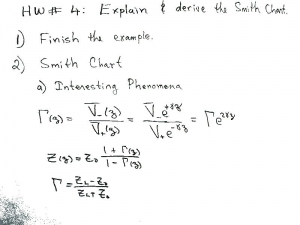 HW# 4: Explain & derive the Smith Chart.
1) Finish the example.
2) Smith Chart
a) Interesting Phenomena
Γ(z) = V₋(z) / V₊(z) = V₋e^{+γz} / V₊e^{-γz} = Γe^{2γz}
Z(z) = Z₀ (1 + Γ(z)) / (1 - Γ(z))
Γ = (Z_L - Z₀) / (Z_L + Z₀)